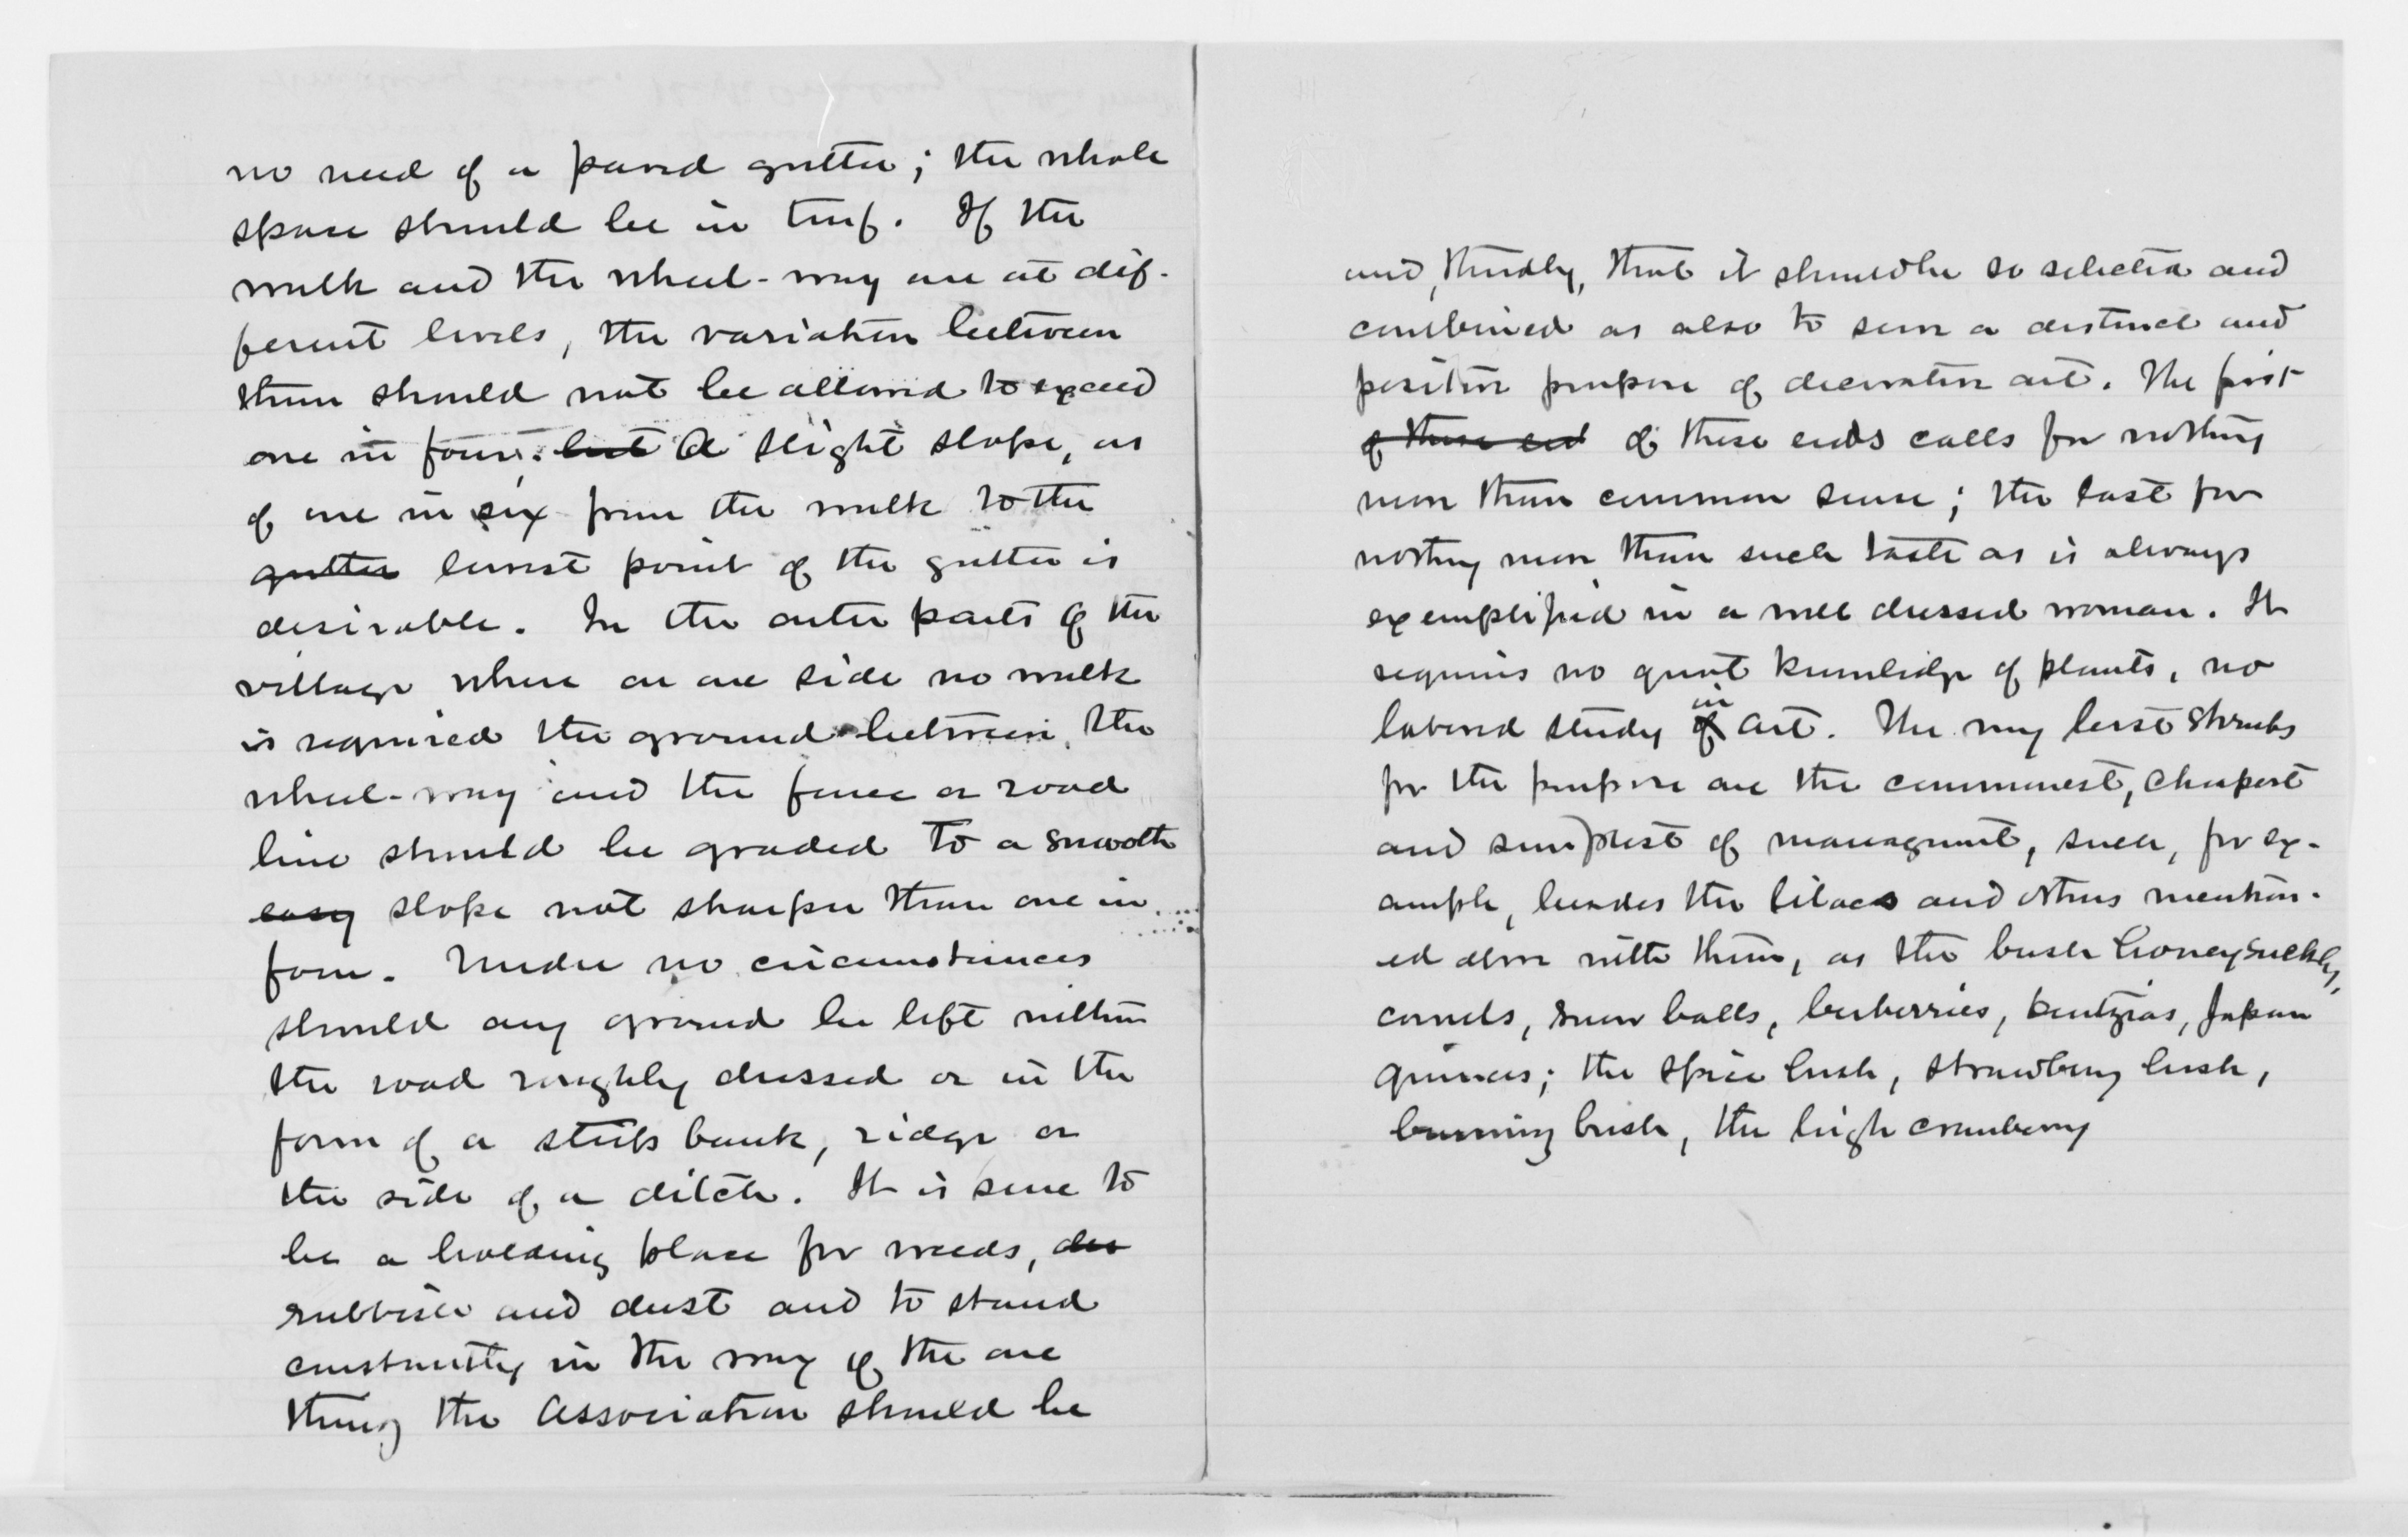 no need of a paved gutter; the whole
space should be in turf. If the
walk and the wheel-way are at dif-
ferent levels, the variation between
them should not be allowed to exceed
one in four. but A slight slope, as
of one in six from the walk to the
gutter lowest point of the gutter is
desirable. In the outer parts of the
village where on one side no walk
is required the ground between the
wheel-way and the fence or road
line should be graded to a smooth
easy slope not sharper than one in
four. Under no circumstances
should any ground be left within
the road roughly dressed or in the
form of a steep bank, ridge or
the side of a ditch. It is sure to
be a holding place for weeds,
rubbish and dust and to stand
constantly in the way of the one
thing the Association should be
and, thirdly, that it should be so selected and
combined as also to serve a distinct and
positive purpose of decorative art. The first
of these end of these ends calls for nothing
more than common sense; the last for
nothing more than such taste as is always
exemplified in a well dressed woman. It
requires no great knowledge of plants, no
labored study of in art. The very best shrubs
for the purpose are the commonest, cheapest
and simplest of managment, such, for ex-
ample, besides the lilacs and others mention-
ed above with them, as the bush honeysuckles,
cornels, snow balls, berberries, deutzias, Japan
quinces; the spice bush, strawberry bush,
burning bush, the high cranberry